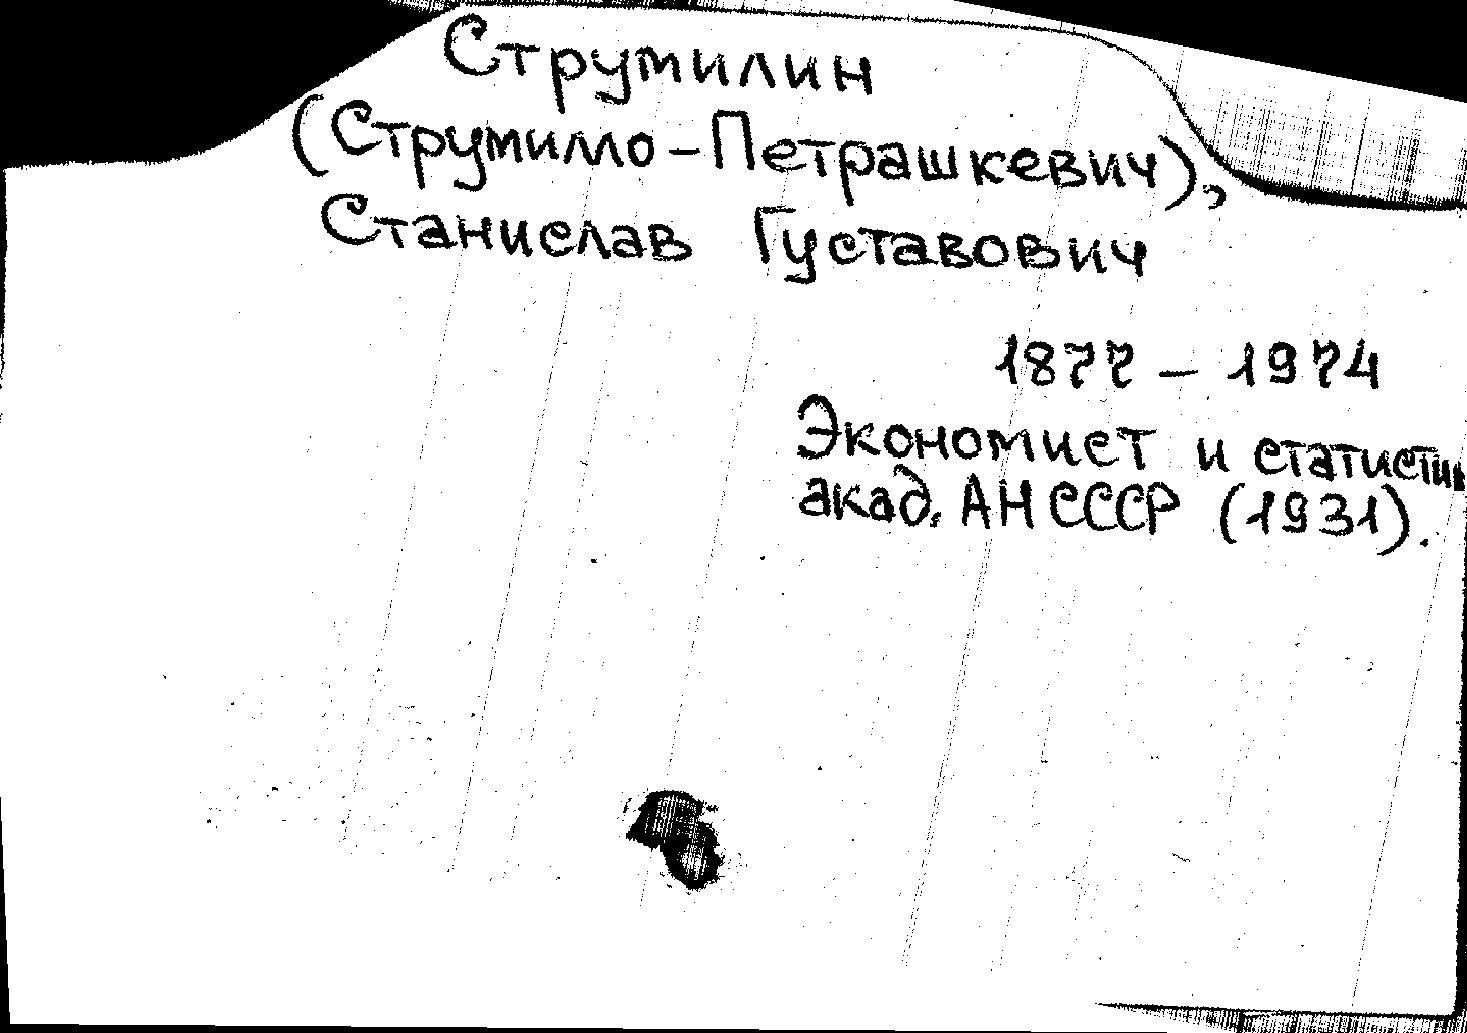 Струмилин
(Струмилло-Петрашкевич),
Станислав Густавович
1877 – 1974
Экономист и статистик
акад. АН СССР (1931).